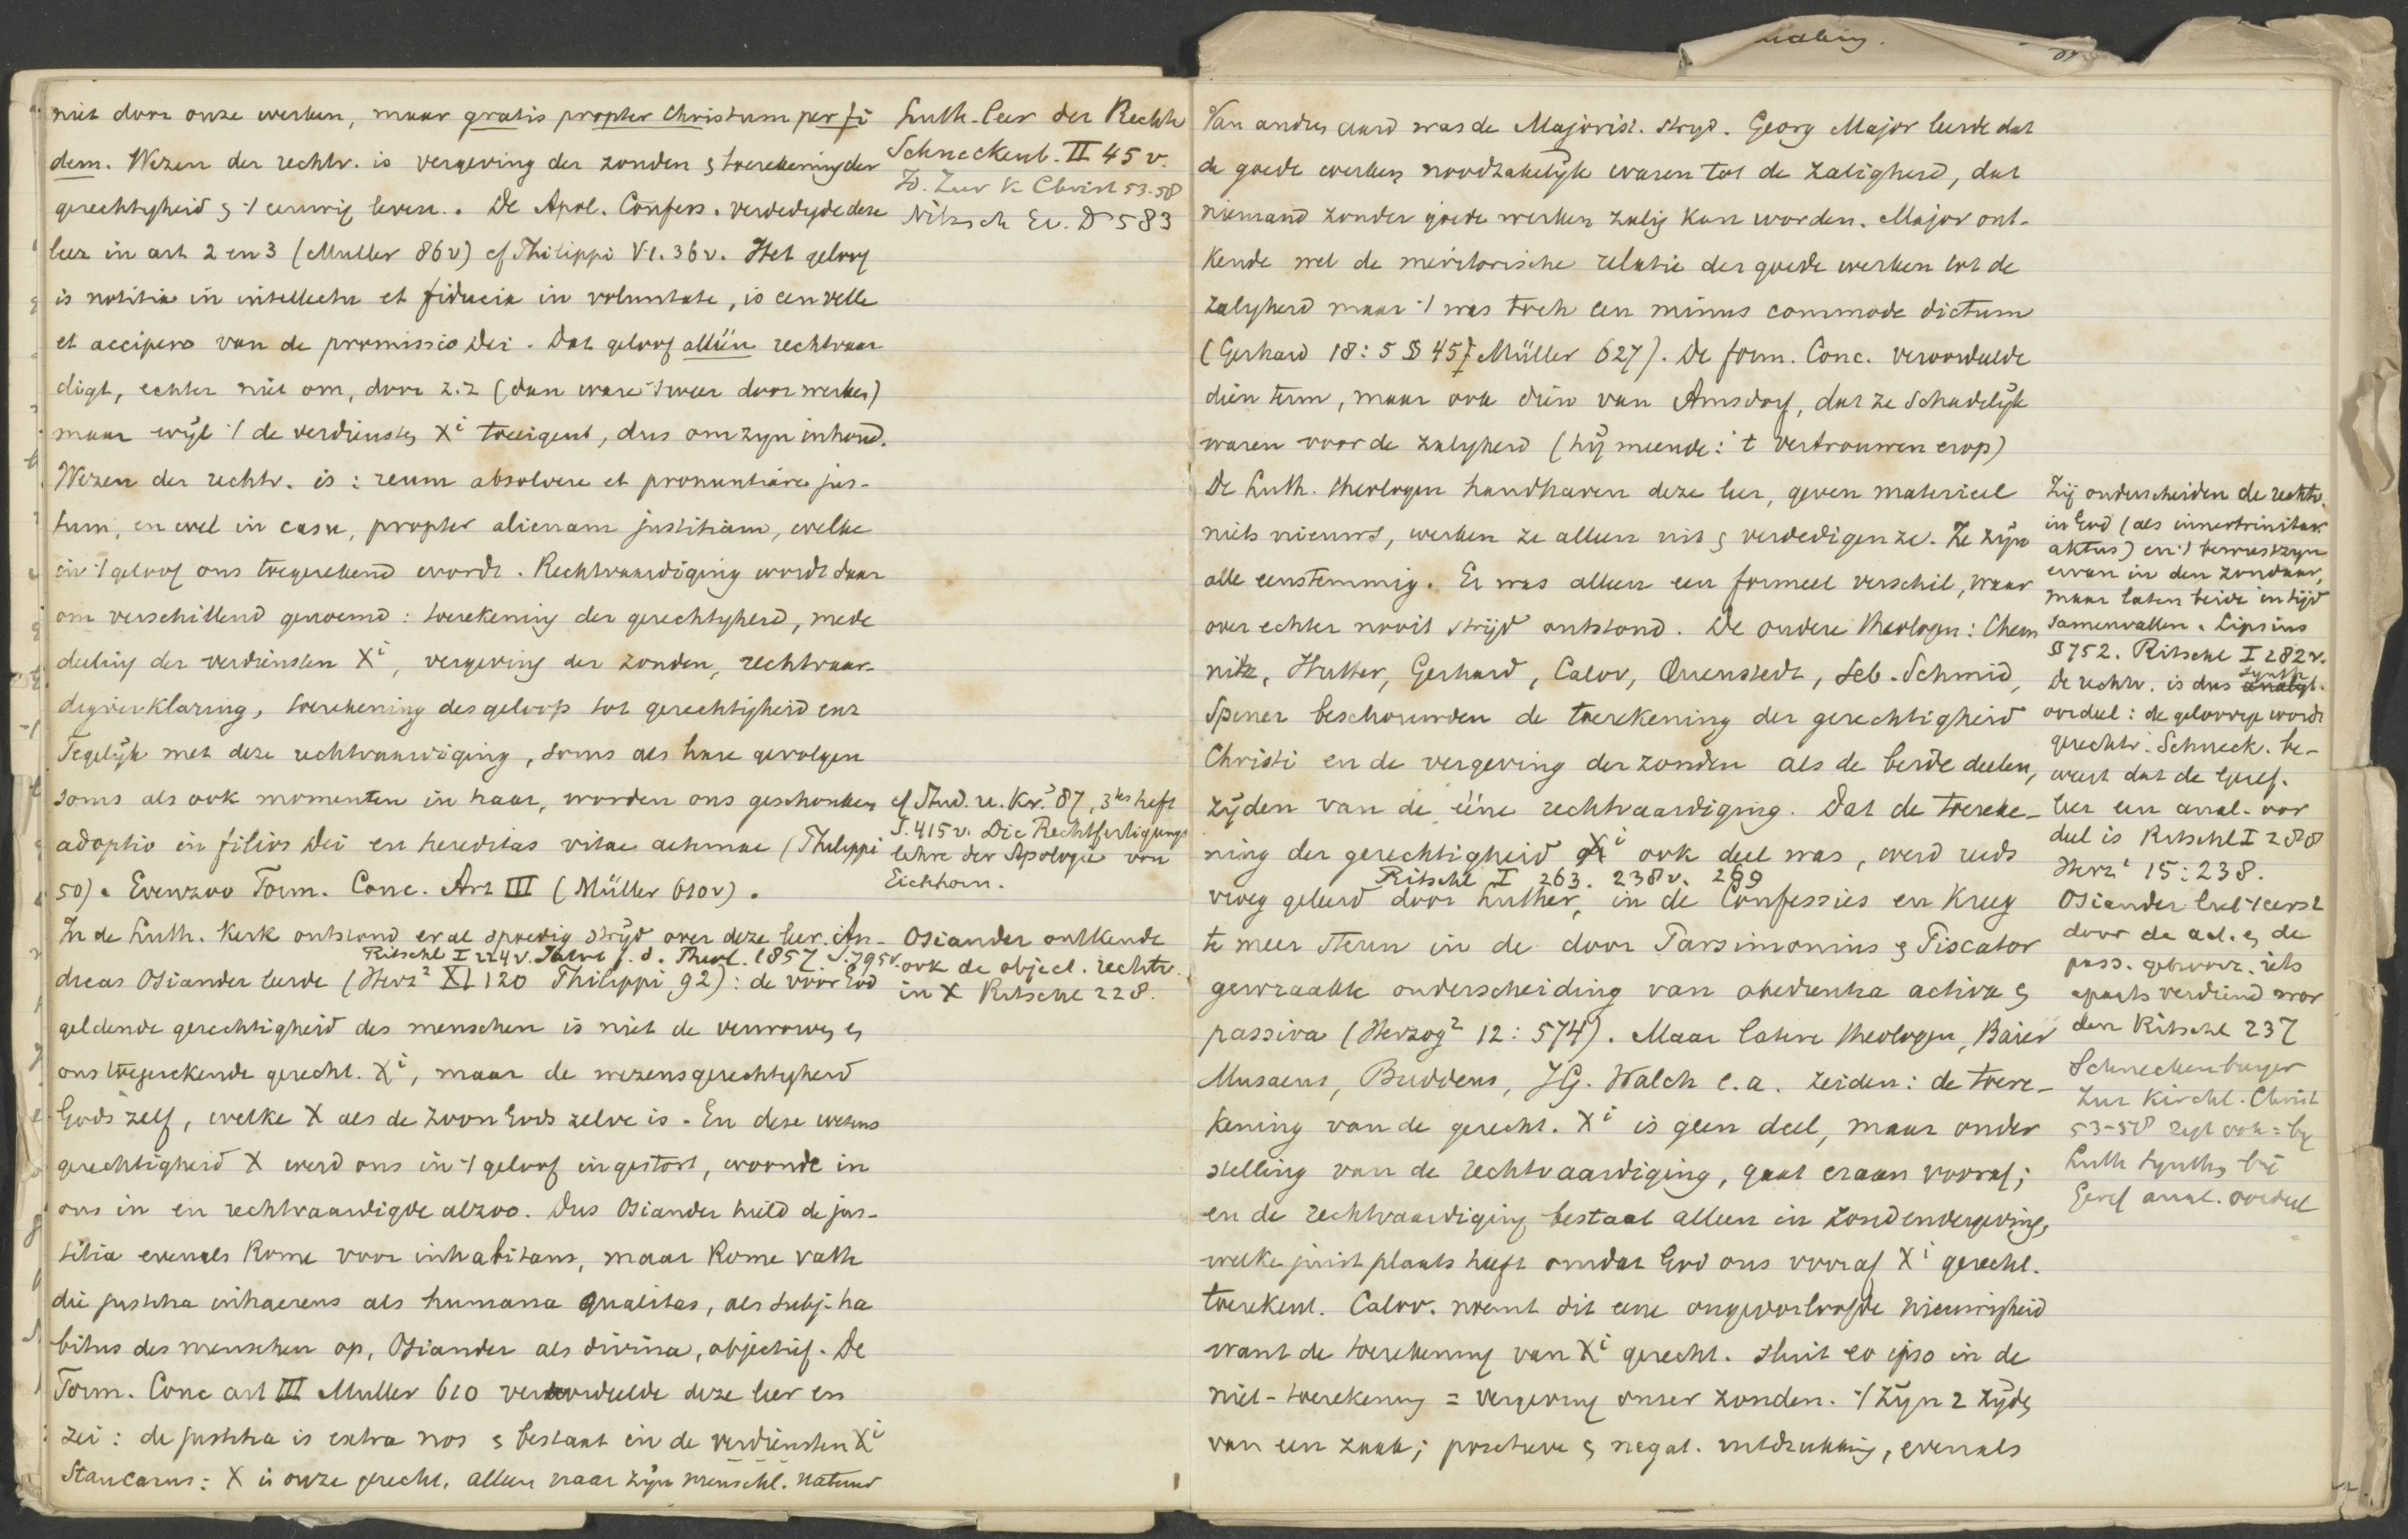 niet door onze werken, maar gratis propter Christum per fi
dem. Wezen der rechtv. is vergeving der zonden & toerekening der
gerechtigheid & 't eeuwig leven. De Apol. Confess. verdedigde deze
leer in art 2 en 3 (Muller 86v) cf Philippi V1. 36v. Het geloof
is notitia in intellectu et fiducia in voluntate, is een velle
et accipere van de promissio Dei. Dat geloof alléén rechtvaar
digt, echter niet om, door z.z (dan ware 't weer door werken)
maar wijl 't de verdiensten Xⁱ toeeigent, dus om zijn inhoud.
Wezen der rechtv. is: reum absolvere et pronuntiare jus-
tum, en wel in casu, propter alienam justitiam, welke
in 't geloof ons toegerekend wordt. Rechtvaardiging wordt daar
om verschillend genoemd: toerekening der gerechtigheid, mede
deeling der verdiensten Xⁱ, vergeving der zonden, rechtvaar-
digverklaring, toerekening des geloofs tot gerechtigheid enz
Tegelijk met deze rechtvaardiging, soms als hare gevolgen
soms als ook momenten in haar, worden ons geschonken
adoptio in filios Dei en hereditas vitae aeternae (Philippi
50). Evenzoo Form. Conc. Art III (Müller 610v).
In de Luth. Kerk ontstond er al spoedig strijd over deze leer. An-
Ritschl I 224v. Jahrb f. d. Theol. 1857 S. 795v.
dreas Osiander leerde (Herz² XI 120 Philippi 92): de voor God
geldende gerechtigheid des menschen is niet de verworven &
ons toegerekende gerecht. Xⁱ, maar de wezensgerechtigheid
Gods zelf, welke X als de Zoon Gods zelve is. En deze wezens
gerechtigheid X werd ons in 't geloof ingestort, woonde in
ons in en rechtvaardigde alzoo. Dus Osiander hield de jus-
titia evenals Rome voor inhabitans, maar Rome vatte
die justitia inhaerens als humana qualitas, als subj. ha
bitus des menschen op, Osiander als divina, objectief. De
Form. Conc art III Muller 610 veroordeelde deze leer en
zei: de justitia is extra nos & bestaat in de verdiensten Xⁱ
Stancarus: X is onze gerecht. alleen naar zijn menschl. natuur
Luth. leer der Rechtv
Schneckenb. II 45 v.
Id. Zur k Christ 53-58
Nitzsch Ev. D 583
cf Stud. u. Kr. '87, 3tes heft
S. 415v. Die Rechtfertigungs
lehre der Apologie von
Eichhorn.
Osiander ontkende
ook de object. rechtv.
in X Ritschl 228.
Van ander aard was de Majorist. strijd. Georg Major leerde dat
de goede werken noodzakelijk waren tot de zaligheid, dat
niemand zonder goede werken zalig kan worden. Major ont-
kende wel de meritorische relatie der goede werken tot de
zaligheid maar 't was toch een minus commode dictum
(Gerhard 18: 5 § 45 Müller 627). De form. Conc. veroordeelde
dien term, maar ook dien van Amsdorf, dat ze schadelijk
waren voor de zaligheid (hij meende: 't vertrouwen erop)
De Luth. theologen handhaven deze leer, geven materieel
niets nieuws, werken ze alleen uit & verdedigen ze. Ze zijn
alle eenstemmig. Er was alleen een formeel verschil, waar
over echter nooit strijd ontstond. De oudere theologen: Chem
nitz, Hutter, Gerhard, Calov, Quenstedt, Seb. Schmid,
Spener beschouwden de toerekening der gerechtigheid
Christi en de vergeving der zonden als de beide deelen,
zijden van de ééne rechtvaardiging. Dat de toereke-
ning der gerechtigheid Xⁱ ook deel was, werd reeds
Ritschl I 263. 238v. 299
vroeg geleerd door Luther, in de Confessies en kreeg
te meer steun in de door Parsimonius & Piscator
gewraakte onderscheiding van obedientia activa &
passiva (Herzog² 12: 574). Maar latere theologen, Baier
Musaeus, Buddeus, J.G. Walch e.a. zeiden: de toere-
kening van de gerecht. Xⁱ is geen deel, maar onder
stelling van de rechtvaardiging, gaat eraan vooraf;
en de rechtvaardiging bestaat alleen in zondenvergeving,
welke juist plaats heeft omdat God ons vooraf Xⁱ gerecht.
toerekent. Calov. noemt dit eene ongeoorloofde nieuwigheid
want de toerekening van Xⁱ gerecht. sluit eo ipso in de
niet-toerekening = vergeving onzer zonden. 't Zijn 2 zijden
van een zaak; positieve & negat. uitdrukking, evenals
Zij onderscheiden de rechtv.
in God (als innertrinitar.
aktus) en 't bewustzijn
ervan in den zondaar,
maar laten beide in tijd
samenvallen. Lipsius
§ 752. Ritschl I 282v.
De rechtv. is dus synth analyt.
oordeel: de geloovige wordt
gerechtv. Schneck. be-
weert dat de Geref.
leer een anal. oor
deel is Ritschl I 288
Herz² 15:238.
Osiander liet 't eerst
door de act. & de
pass. gehoorz. iets
aparts verdiend wor
den Ritschl 237
Schneckenburger
Zur Kirchl. Christ
53-58 zegt ook: bij
Luth synth, bij
Geref anal. oordeel